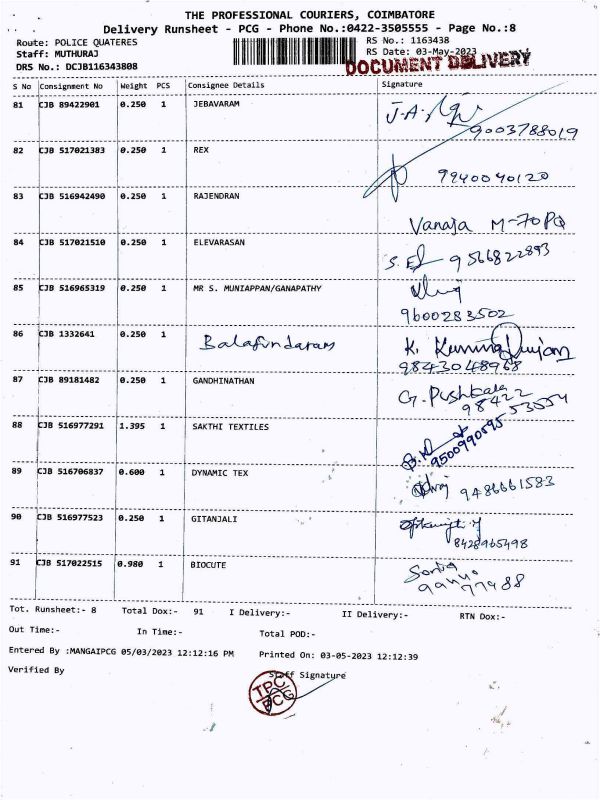 THE PROFESSIONAL COURIERS, COIMBATORE
Delivery Runsheet - PCG - Phone No.:0422-3505555 - Page No.:8
Route: POLICE QUATERES RS No.: 1163438
Staff: MUTHURAJ RS Date: 03-May-2023
DRS No.: DCJB116343808 DOCUMENT DELIVERY
S No Consignment No Weight PCS Consignee Details Signature
81 CJB 89422901 0.250 1 JEBAVARAM J.A.
9003788019
82 CJB 517021383 0.250 1 REX 9940040120
83 CJB 516942490 0.250 1 RAJENDRAN
Vanaja M-70PQ
84 CJB 517021510 0.250 1 ELEVARASAN
9566822893
85 CJB 516965319 0.250 1 MR S. MUNIAPPAN/GANAPATHY
9600283502
86 CJB 1332641 0.250 1 Balasundaram K.
9843048968
87 CJB 89181482 0.250 1 GANDHINATHAN G. Pushkala
98422 53054
88 CJB 516977291 1.395 1 SAKTHI TEXTILES
9500990595
89 CJB 516706837 0.600 1 DYNAMIC TEX 9486661583
90 CJB 516977523 0.250 1 GITANJALI
8428965498
91 CJB 517022515 0.980 1 BIOCUTE
77988
Tot. Runsheet:- 8 Total Dox:- 91 I Delivery:- II Delivery:- RTN Dox:-
Out Time:- In Time:- Total POD:-
Entered By :MANGAIPCG 05/03/2023 12:12:16 PM Printed On: 03-05-2023 12:12:39
Verified By Staff Signature
TPC
PCG